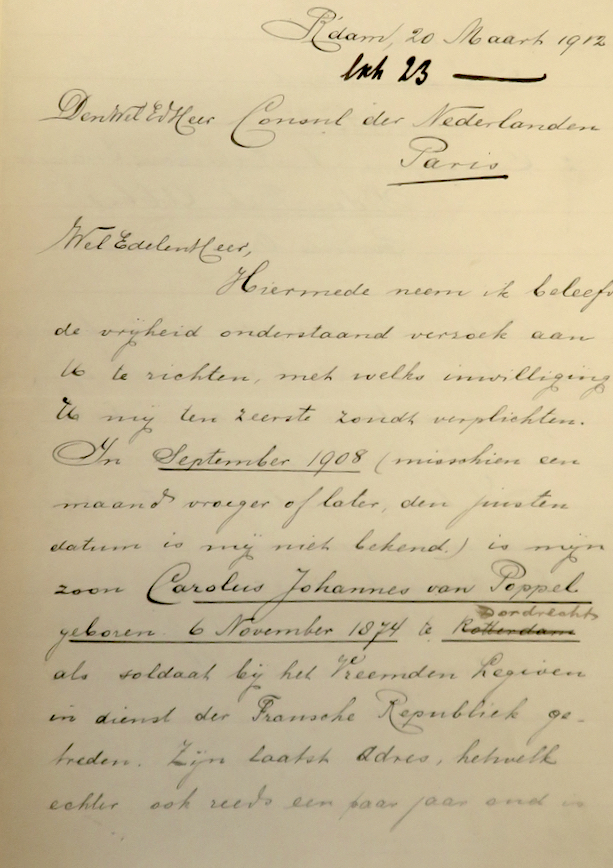 R'dam, 20 Maart 1912
23
DenWelEdHeer Consul der Nederlanden
Paris
WelEdelenHeer,
Hiermede neem ik beleefd
de vrijheid onderstaand verzoek aan
U te richten, met welks inwilliging
U mij ten zeerste zoudt verplichten.
In September 1908 (misschien een
maand vroeger of later, den juisten
datum is mij niet bekend.) is mijn
zoon Carolus Johannes van Poppel
Dordrecht
geboren 6 November 1874 te Rotterdam
als soldaat bij het Vreemden Legioen
in dienst der Fransche Republiek ge-
treden. Zijn laatst adres, hetwelk
echter ook reeds een paar jaar oud is